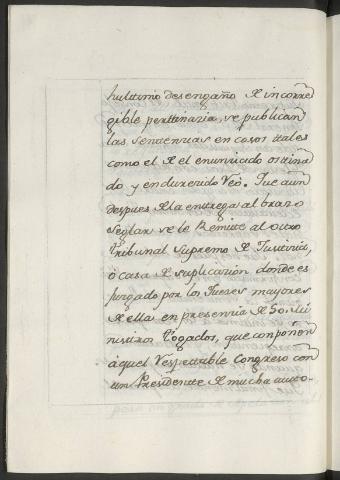 hultimo desengaño de incorre
gible perttinazia, se publican
las sentencias en casos ttales
como el de el enunziado osttina
do y endurezido Reo. Que aun
despues de la entrega al brazo
Seglar se le Remite al ottro
tribunal Supremo de Justticia,
ò casa de suplicazion donde es
Juzgado por los Juezes mayores
de ella en presenzia de 50. Mi
nisttros Togados, que conponen
àquel Respettable Congreso con
un Presidente de mucha autto-